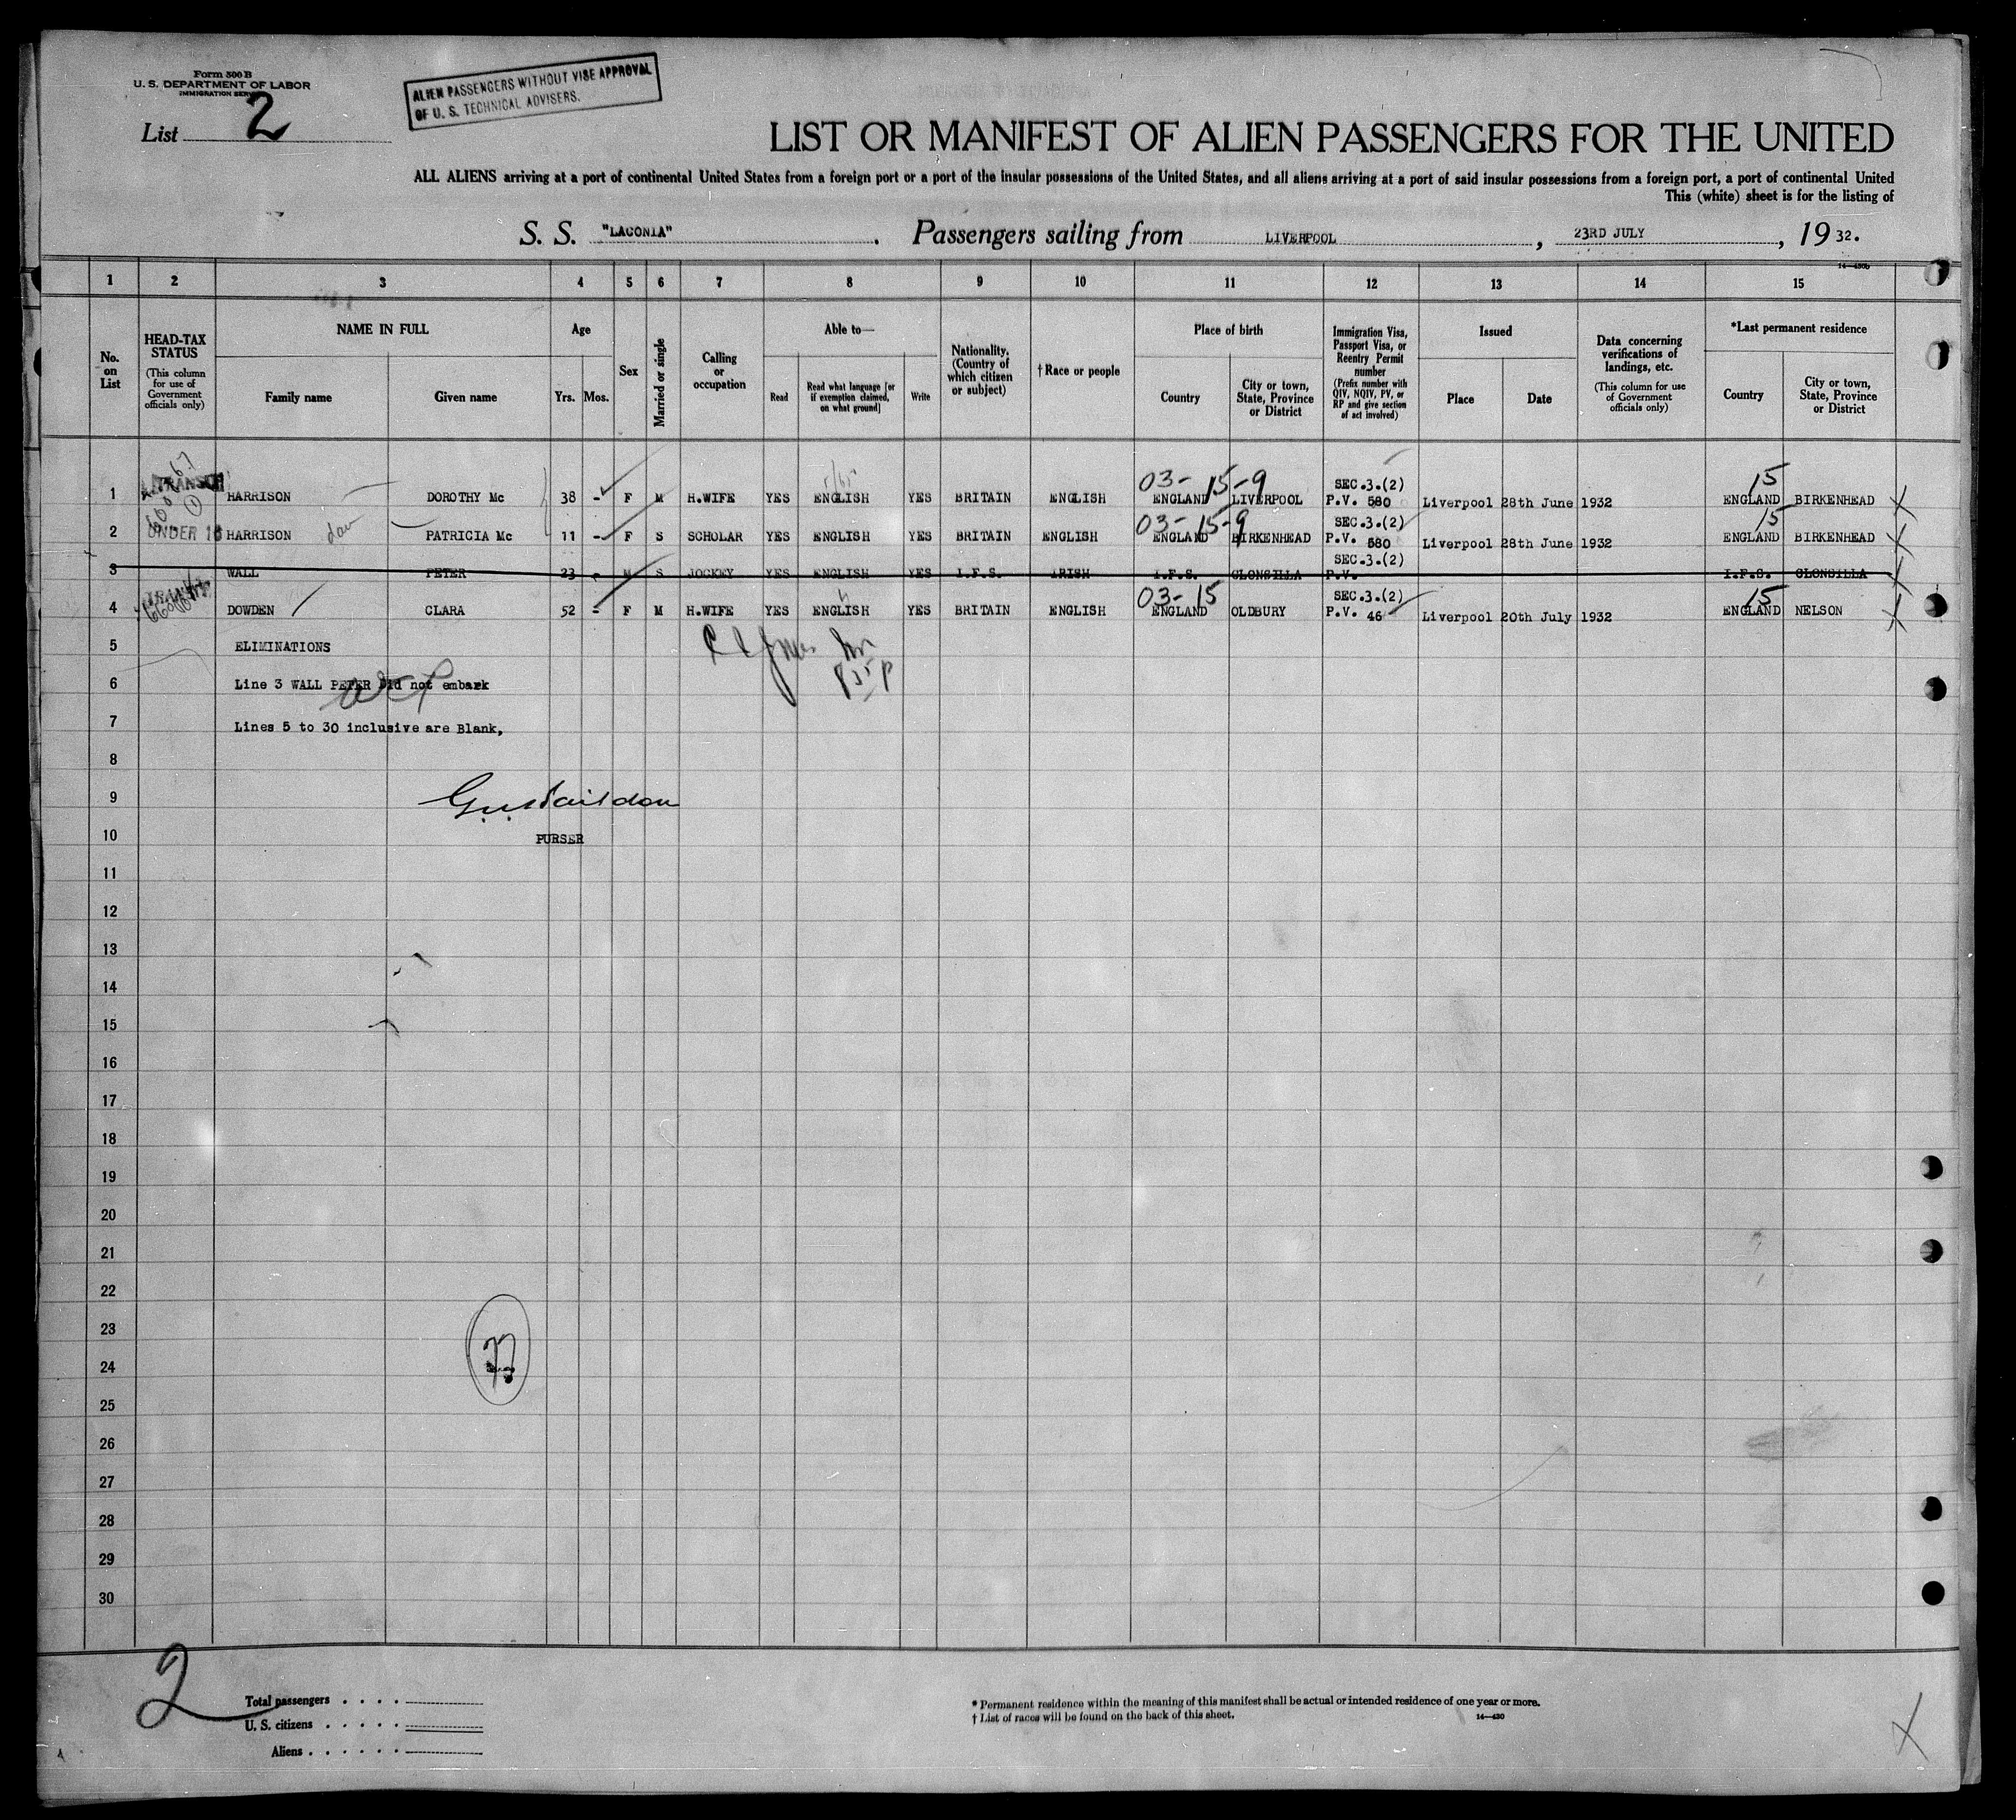 Form 500 B
U. S. DEPARTMENT OF LABOR
IMMIGRATION SERVICE
List 2
ALIEN PASSENGERS WITHOUT VISE APPROVAL
OF U. S. TECHNICAL ADVISERS.
LIST OR MANIFEST OF ALIEN PASSENGERS FOR THE UNITED
ALL ALIENS arriving at a port of continental United States from a foreign port or a port of the insular possessions of the United States, and all aliens arriving at a port of said insular possessions from a foreign port, a port of continental United
This (white) sheet is for the listing of
S. S. "LACONIA". Passengers sailing from LIVERPOOL, 23RD JULY, 19 32.
14—430b
1 2 3 4 5 6 7 8 9 10 11 12 13 14 15
No. on List
HEAD-TAX STATUS
(This column for use of Government officials only)
NAME IN FULL
Family name
Given name
Age
Yrs.
Mos.
Sex
Married or single
Calling or occupation
Able to—
Read
Read what language [or if exemption claimed, on what ground]
Write
Nationality. (Country of which citizen or subject)
†Race or people
Place of birth
Country
City or town, State, Province or District
Immigration Visa, Passport Visa, or Reentry Permit number
(Prefix number with QIV, NQIV, PV, or RP and give section of act involved)
Issued
Place
Date
Data concerning verifications of landings, etc.
(This column for use of Government officials only)
*Last permanent residence
Country
City or town, State, Province or District
03- 15-9 15
1 HARRISON DOROTHY Mc 38 - F M H.WIFE YES ENGLISH YES BRITAIN ENGLISH ENGLAND LIVERPOOL SEC.3.(2) P.V. 580 Liverpool 28th June 1932 ENGLAND BIRKENHEAD
03- 15-9 15
2 UNDER 16 HARRISON PATRICIA Mc 11 - F S SCHOLAR YES ENGLISH YES BRITAIN ENGLISH ENGLAND BIRKENHEAD SEC.3.(2) P.V. 580 Liverpool 28th June 1932 ENGLAND BIRKENHEAD
3 WALL PETER 23 - M S JOCKEY YES ENGLISH YES I.F.S. IRISH I.F.S. CLONSILLA SEC.3.(2) P.V. I.F.S. CLONSILLA
03- 15 15
4 DOWDEN CLARA 52 - F M H.WIFE YES ENGLISH YES BRITAIN ENGLISH ENGLAND OLDBURY SEC.3.(2) P.V. 46 Liverpool 20th July 1932 ENGLAND NELSON
5 ELIMINATIONS
6 Line 3 WALL PETER Did not embark
7 Lines 5 to 30 inclusive are Blank,
8
9
10 PURSER
11
12
13
14
15
16
17
18
19
20
21
22
23
24
25
26
27
28
29
30
2
Total passengers . . . .
U. S. citizens . . . . .
Aliens . . . . . .
* Permanent residence within the meaning of this manifest shall be actual or intended residence of one year or more.
† List of races will be found on the back of this sheet.
14—430